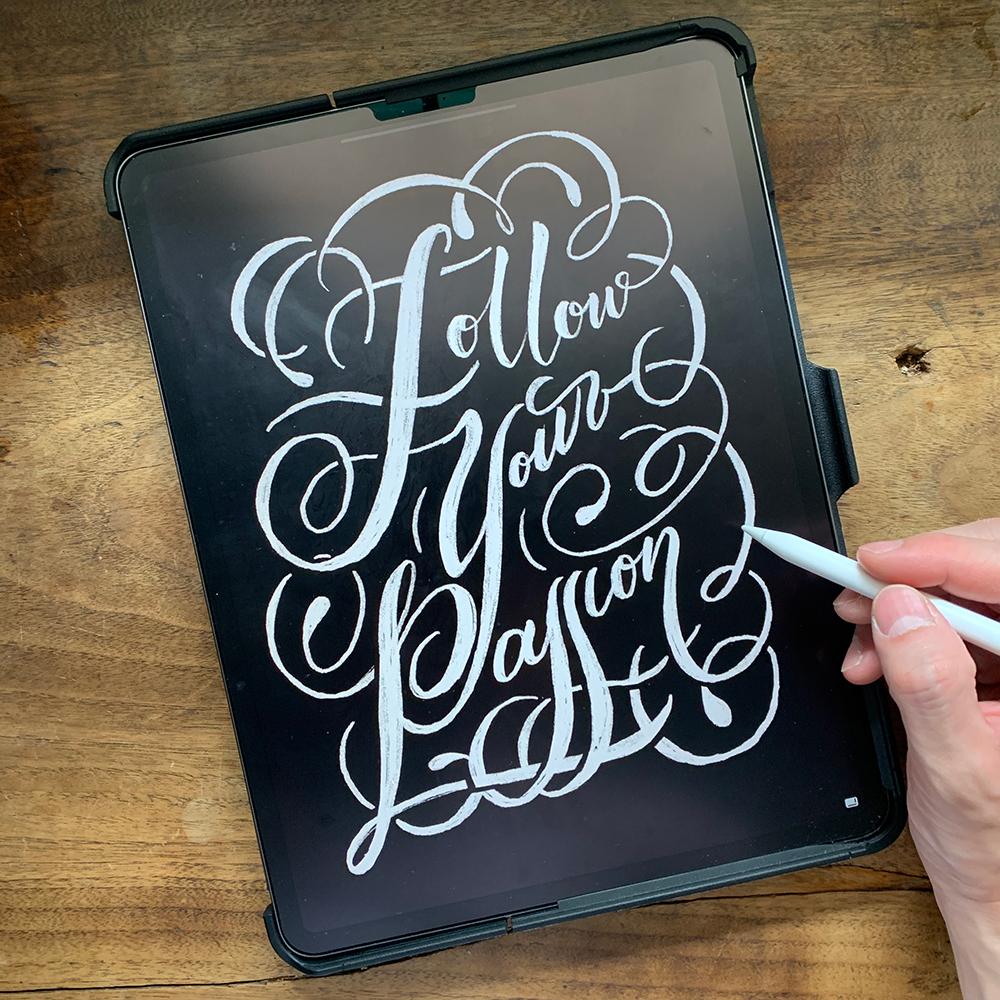 Follow
Your
Passion